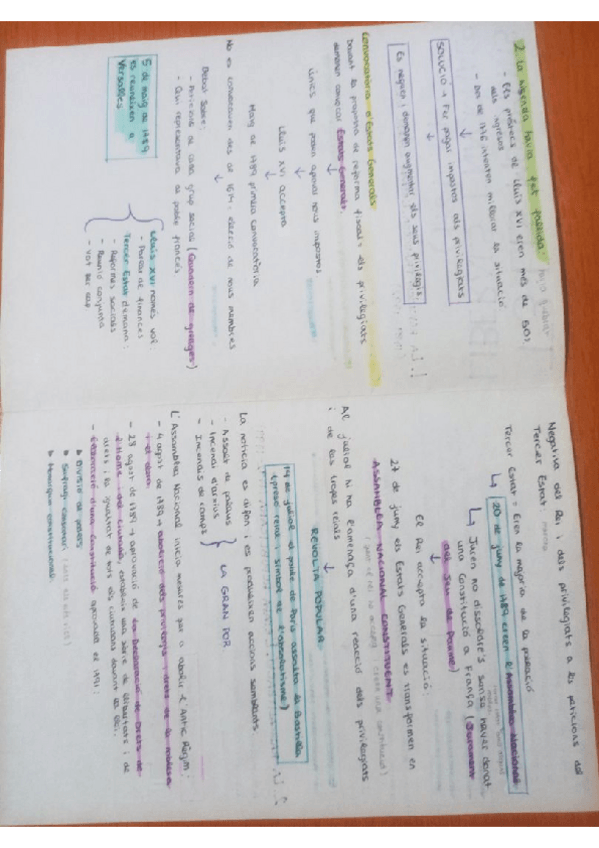 2. La hisenda havia fet fallida:
- Els préstecs de Lluís XVI eren més de 50%
dels ingressos
- Des de 1776 intenten millorar la situació
↓
SOLUCIÓ → Fer pagar impostos als privilegiats
↓
Es neguen i demanen augmentar els seus privilegis.
Convocatòria d'Estats Generals
Davant la proposta de reforma fiscal, els privilegiats
demanen convocar Estats Generals.
↓
Únics que podien aprovar nous impostos
↓
Lluís XVI accepta
↓
Maig de 1789 primera convocatòria
No es convocaven des de 1614: elecció de nous membres
↓
Debat sobre:
- Peticions de cada grup social (Quadern de greuges)
- Qui representava al poble francès
5 de maig de 1789
es reuneixen a
Versalles
Lluís XVI només vol:
- Parlar de finances
Tercer Estat demana:
- Reformes socials
- Reunió conjunta
- Vot per cap
Negativa del Rei i dels privilegiats a les peticions del
Tercer Estat
Tercer Estat → Eren la majoria de la població
↳ 20 de juny de 1789 creen l'Assamblea Nacional
↳ Juren no dissoldre's sense haver donat
una Constitució a França (Jurament
del Joc de Palma)
↓
El Rei accepta la situació:
27 de juny els Estats Generals es transformen en
ASSAMBLEA NACIONAL CONSTITUENT
Al juliol hi ha l'amenaça d'una reacció dels privilegiats
i de les tropes reials
↓
REVOLTA POPULAR
14 de juliol el poble de París assalta la Bastilla
(presó reial i símbol de l'absolutisme)
La notícia es difon i es produeixen accions semblants
- Assalt de palaus
- Incendi d'arxius
- Incendis de camps
LA GRAN POR
L'Assamblea Nacional inicia mesures per a abolir l'Antic Règim:
- 4 agost de 1789 → abolició dels privilegis i drets de la noblesa
i el clero.
- 28 agost de 1789 → aprovació de la Declaració de Drets de
l'Home i del Ciutadà, estableix una sèrie de llibertats i de
drets i la igualtat de tots els ciutadans davant la llei.
- Elaboració d'una Constitució aprovada el 1791:
▸ Divisió de poders
▸ Sufragi censatari
▸ Monarquia constitucional